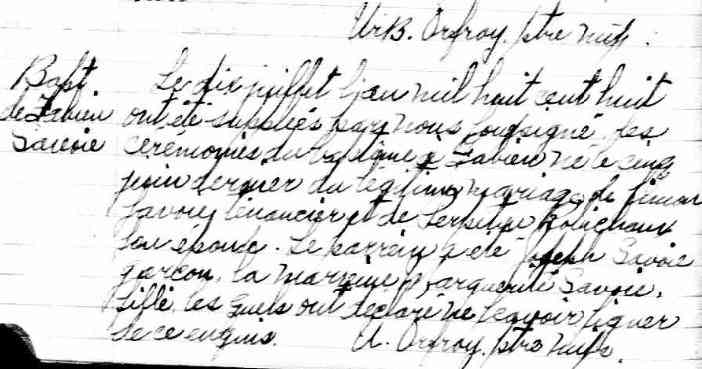 Urb. Orfroy, ptre miss.
Bapt. Le dix juillet l'an mil huit cent huit
de Fabien ont été suppliés par nous soussigné, les
Savoie cérémonies du baptême à Fabien né le cinq
juin dernier du légitime mariage de
Savoie tenancier et de Robichaux
son épouse. Le parrein a été Joseph Savoie
garçon, la marreine Marguerite Savoie,
fille, les quels ont déclaré ne scavoir signer
de ce enquis. U. Orfroy, ptre miss.